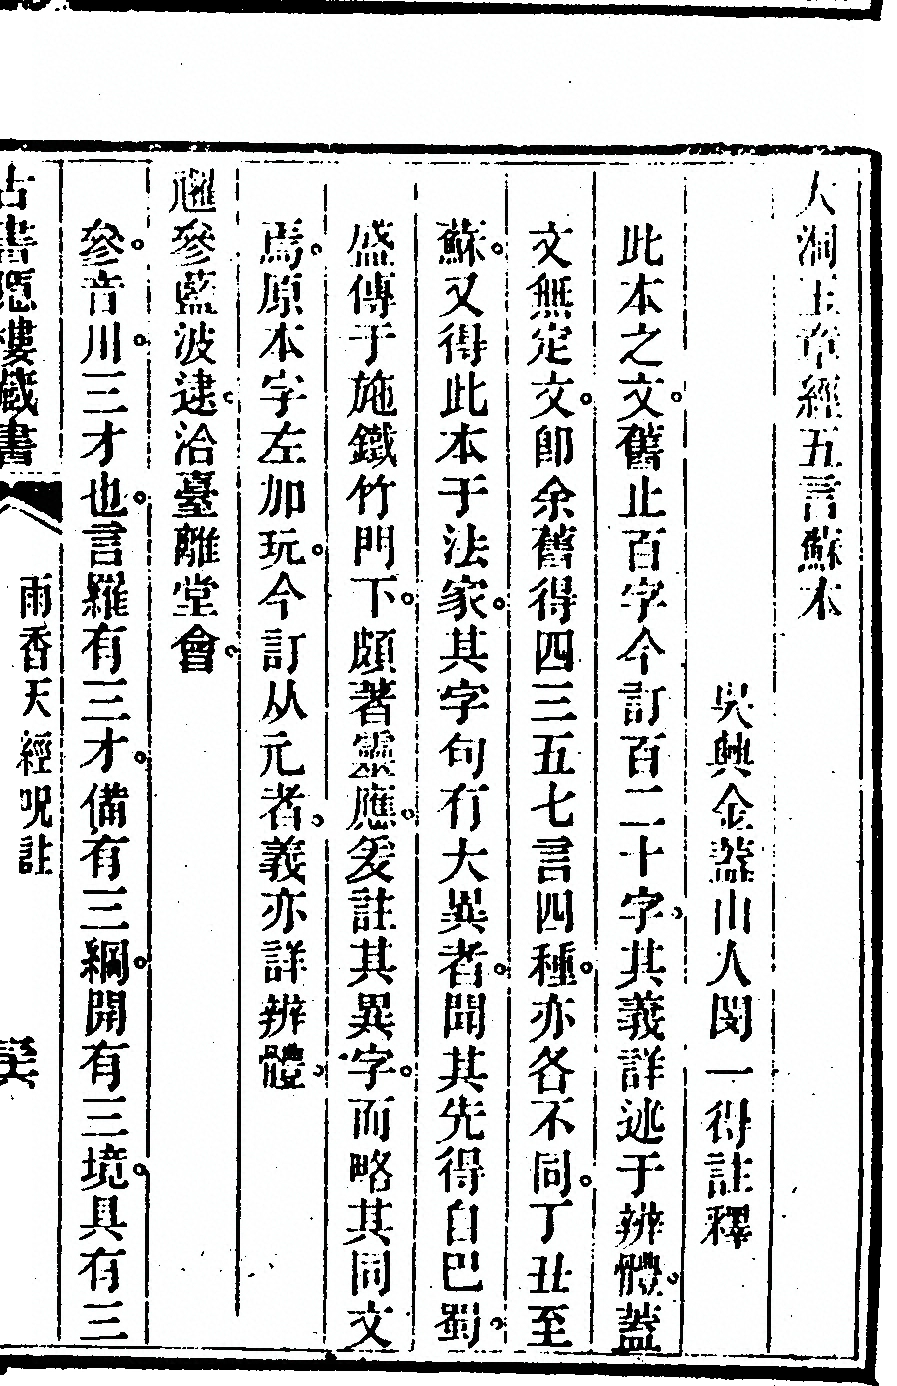 大洞玉章經五言蘇本
吳興金葢山人閔一得註釋
此本之文。舊止百字今訂百二十字。其義詳述于辨體。葢
文無定文。卽余舊得四三五七言四種。亦各不同。丁丑至
蘇。又得此本于法家。其字句有大異者。聞其先得自巴蜀。
盛傳于施鐵竹門下。頗著靈應。爰註其異字。而略其同文
焉。原本字左加玩。今訂从元者。義亦詳辨體。
邏參藍波逮。洽臺離堂會。
參。音川。三才也。言羅有三才。備有三綱。開有三境。具有三
古書隱樓藏書
雨香天經呪註